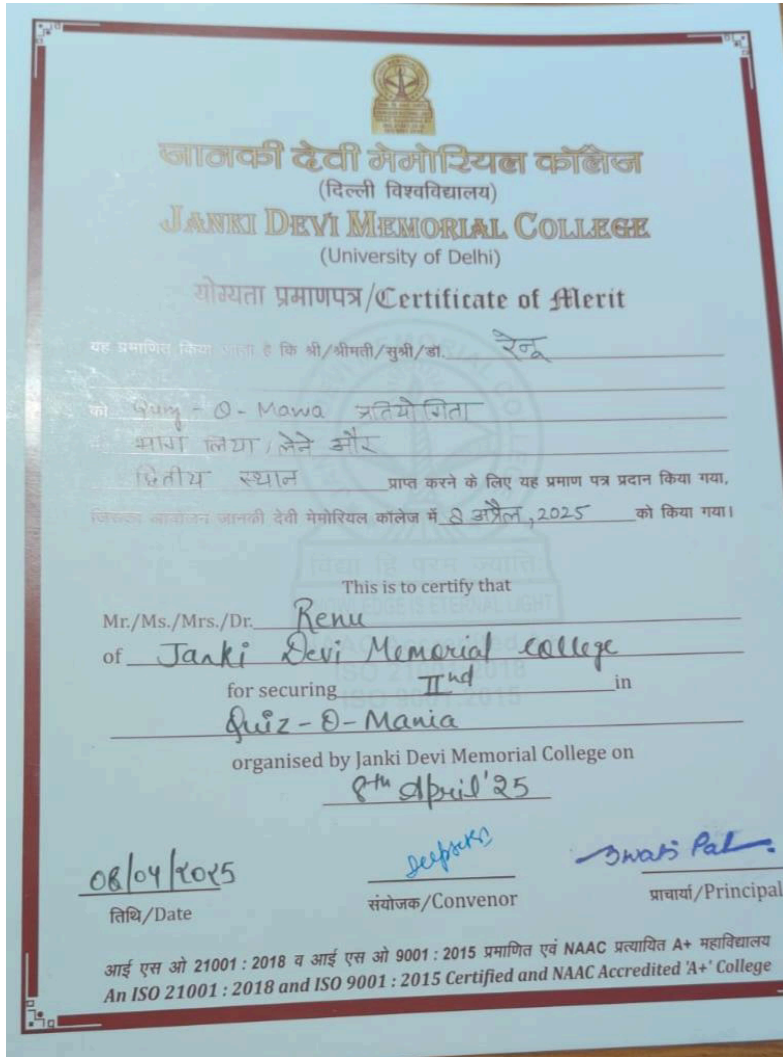 जानकी देवी मेमोरियल कॉलेज
(दिल्ली विश्वविद्यालय)
JANKI DEVI MEMORIAL COLLEGE
(University of Delhi)
योग्यता प्रमाणपत्र/Certificate of Merit
यह प्रमाणित किया जाता है कि श्री/श्रीमती/सुश्री/डॉ. रेनू
को -O- प्रतियोगिता
भाग लिया/लेने और
द्वितीय स्थान प्राप्त करने के लिए यह प्रमाण पत्र प्रदान किया गया,
जिसका आयोजन जानकी देवी मेमोरियल कॉलेज में 8 अप्रैल, 2025 को किया गया।
विद्या हि परम ज्योतिः
KNOWLEDGE IS ETERNAL LIGHT
This is to certify that
Mr./Ms./Mrs./Dr. Renu
of Janki Devi Memorial College
ISO 21001:2018
for securing IInd in
ISO 9001:2015
Quiz-O-Mania
organised by Janki Devi Memorial College on
8th April'25
08/04/2025
Swati Pal
तिथि/Date
संयोजक/Convenor
प्राचार्या/Principal
आई एस ओ 21001 : 2018 व आई एस ओ 9001 : 2015 प्रमाणित एवं NAAC प्रत्यायित A+ महाविद्यालय
An ISO 21001 : 2018 and ISO 9001 : 2015 Certified and NAAC Accredited 'A+' College